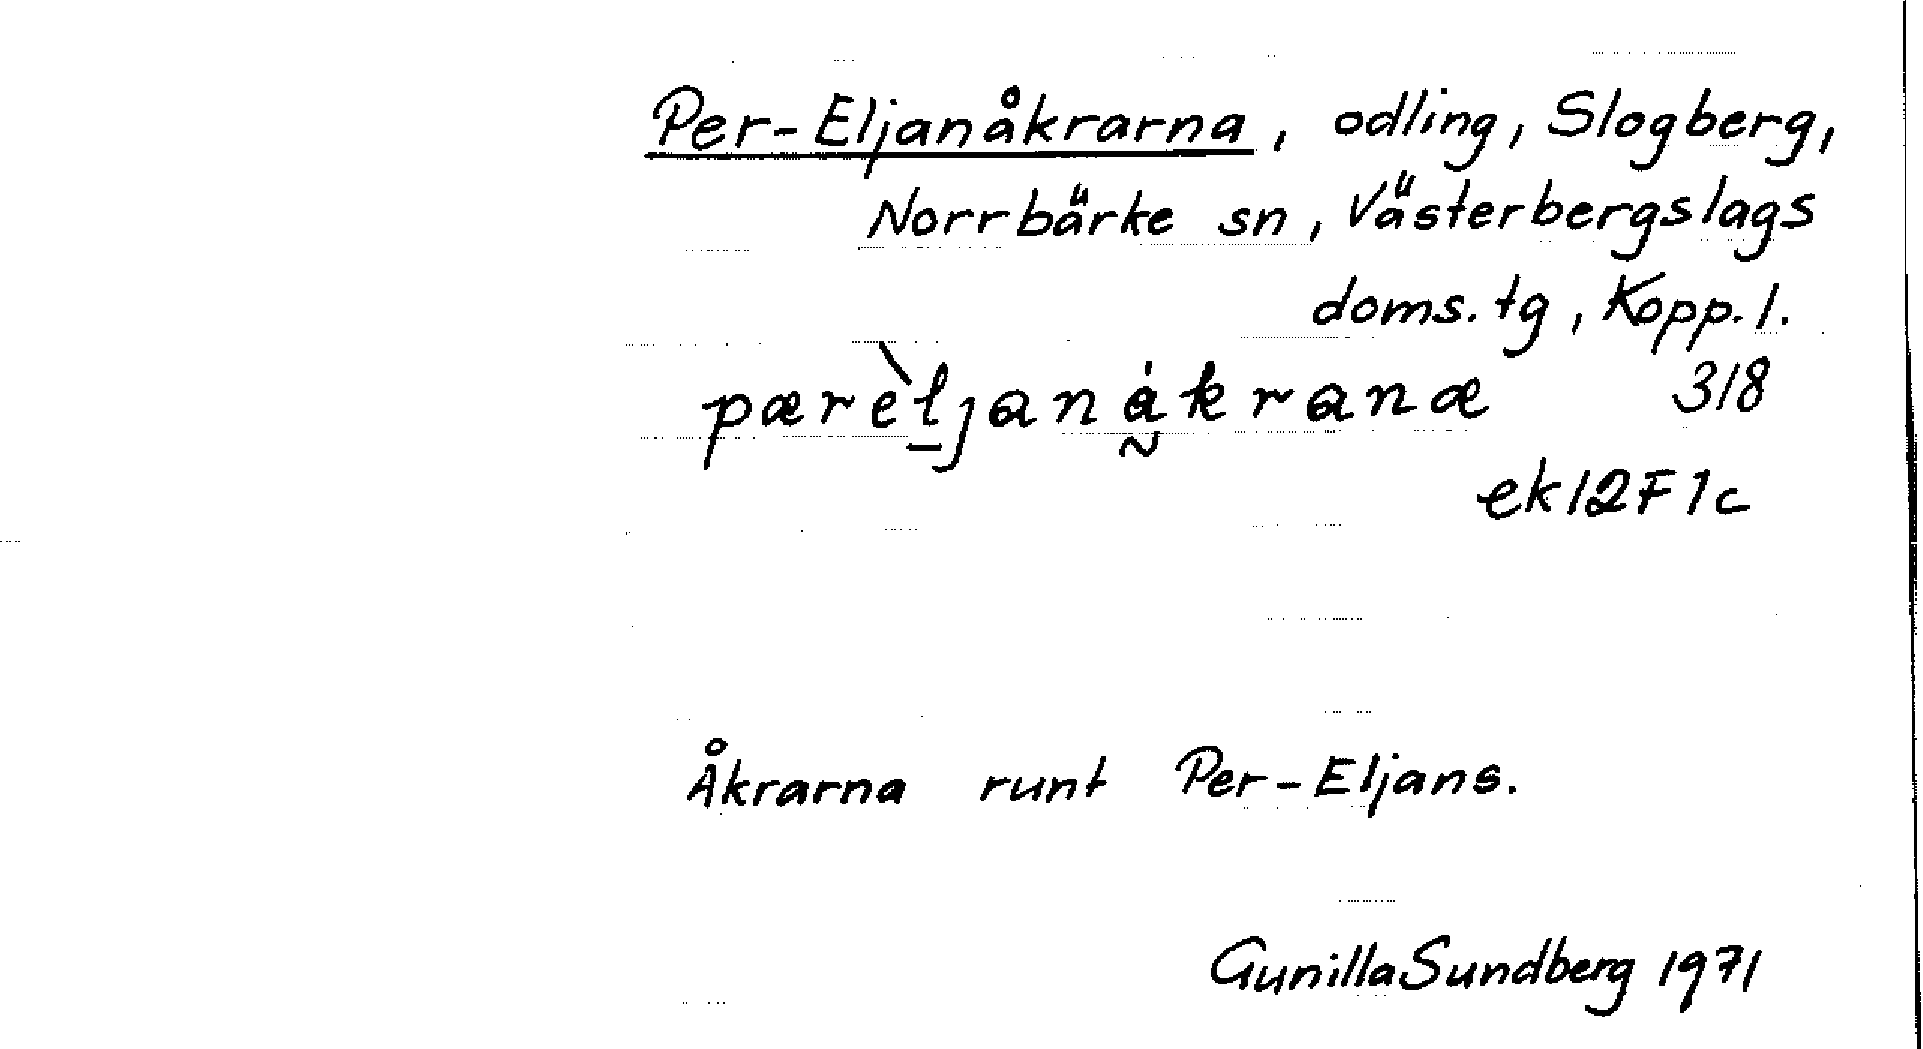 Per-Eljanåkrarna, odling, Slogberg,
Norrbärke sn, Västerbergslags
doms. tg, Kopp. l.
pærèl̠janå̰kranæ 318
ek12F1c
Åkrarna runt Per-Eljans.
Gunilla Sundberg 1971